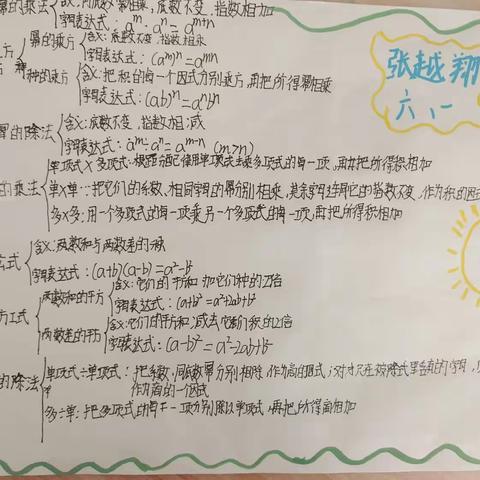 幂的乘法 含义:同底数幂相乘,底数不变,指数相加
字母表达式:aᵐ·aⁿ=aᵐ⁺ⁿ
幂的乘方 含义:底数不变,指数相乘
字母表达式:(aᵐ)ⁿ=aᵐⁿ
积的乘方 含义:把积的每一个因式分别乘方,再把所得幂相乘
字母表达式:(ab)ⁿ=aⁿbⁿ
张越翔
六、一
幂的除法 含义:底数不变,指数相减
字母表达式:aᵐ÷aⁿ=aᵐ⁻ⁿ (m>n)
单项式×多项式:根据分配律用单项式去乘多项式的每一项,再把所得积相加
的乘法 单×单:把它们的系数、相同字母的幂分别相乘,其余字母连同它的指数不变,作为积的因式
多×多:用一个多项式的每一项乘另一个多项式的每一项,再把所得积相加
公式 含义:两数和与两数差的积
字母表达式:(a+b)(a-b)=a²-b²
两数和的平方 含义:它们的平方和加它们积的2倍
字母表达式:(a+b)²=a²+2ab+b²
方公式
两数差的平方 含义:它们的平方和,减去它们积的2倍
字母表达式:(a-b)²=a²-2ab+b²
的除法 单项式÷单项式:把系数、同底数幂分别相除,作为商的因式;对于只在被除式里含有的字母,
作为商的一个因式
多÷单:把多项式的每一项分别除以单项式,再把所得商相加